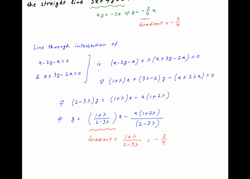 the straight line 3x+4y=0
4y = -3x ⇒ y = -3/4 x
Gradient = -3/4
Line through intersection of
x-2y-a=0 & x+3y-2a=0 } is (x-2y-a)+λ(x+3y-2a)=0
⇒ (1+λ)x+(3λ-2)y-(a+2λa)=0
⇒ (2-3λ)y = (1+λ)x - a(1+2λ)
⇒ y = (1+λ/2-3λ)x - a(1+2λ)/(2-3λ)
Gradient = 1+λ/2-3λ = -3/4